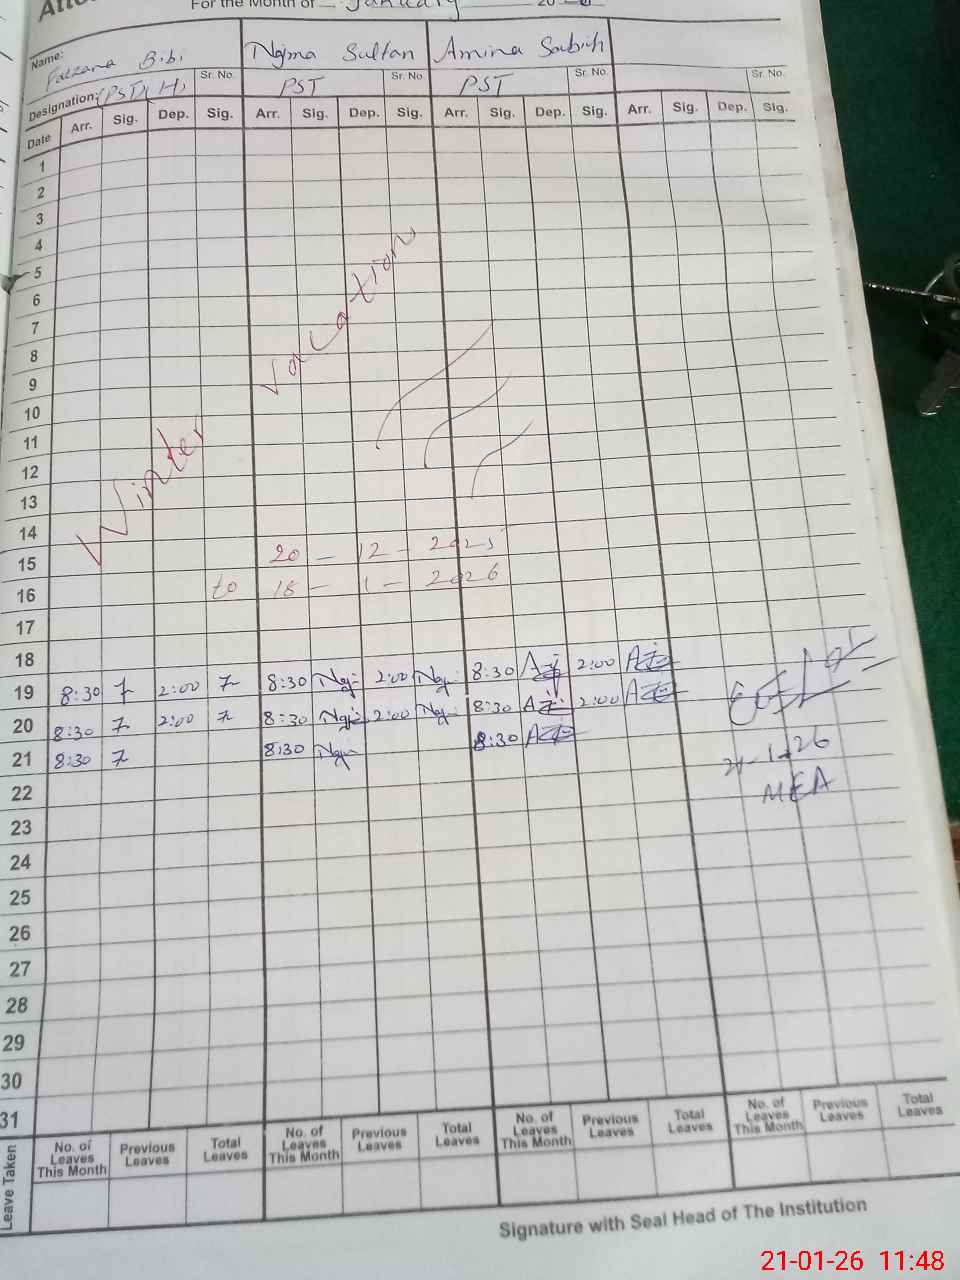 For the Month of January 20
Name: Farzana Bibi Najma Sultan Amina Sabih
Designation: (PST (H) Sr. No. PST Sr. No. PST Sr. No. Sr. No.
Date Arr. Sig. Dep. Sig. Arr. Sig. Dep. Sig. Arr. Sig. Dep. Sig. Arr. Sig. Dep. Sig.
1
2
3
4
5
6
7
8
9
10
11
12
13
14
Winter vacation
15 20 - 12 - 2025
16 to 18 - 1 - 2026
17
18
19 8:30 2:00 8:30 Naj 2:00 Naj 8:30 2:00
20 8:30 2:00 8:30 Naj 2:00 Naj 8:30 2:00
21 8:30 8:30 Naj 8:30
21-1-26
MEA
22
23
24
25
26
27
28
29
30
31
Leave Taken No. of Leaves This Month Previous Leaves Total Leaves No. of Leaves This Month Previous Leaves Total Leaves No. of Leaves This Month Previous Leaves Total Leaves No. of Leaves This Month Previous Leaves Total Leaves
Signature with Seal Head of The Institution
21-01-26 11:48